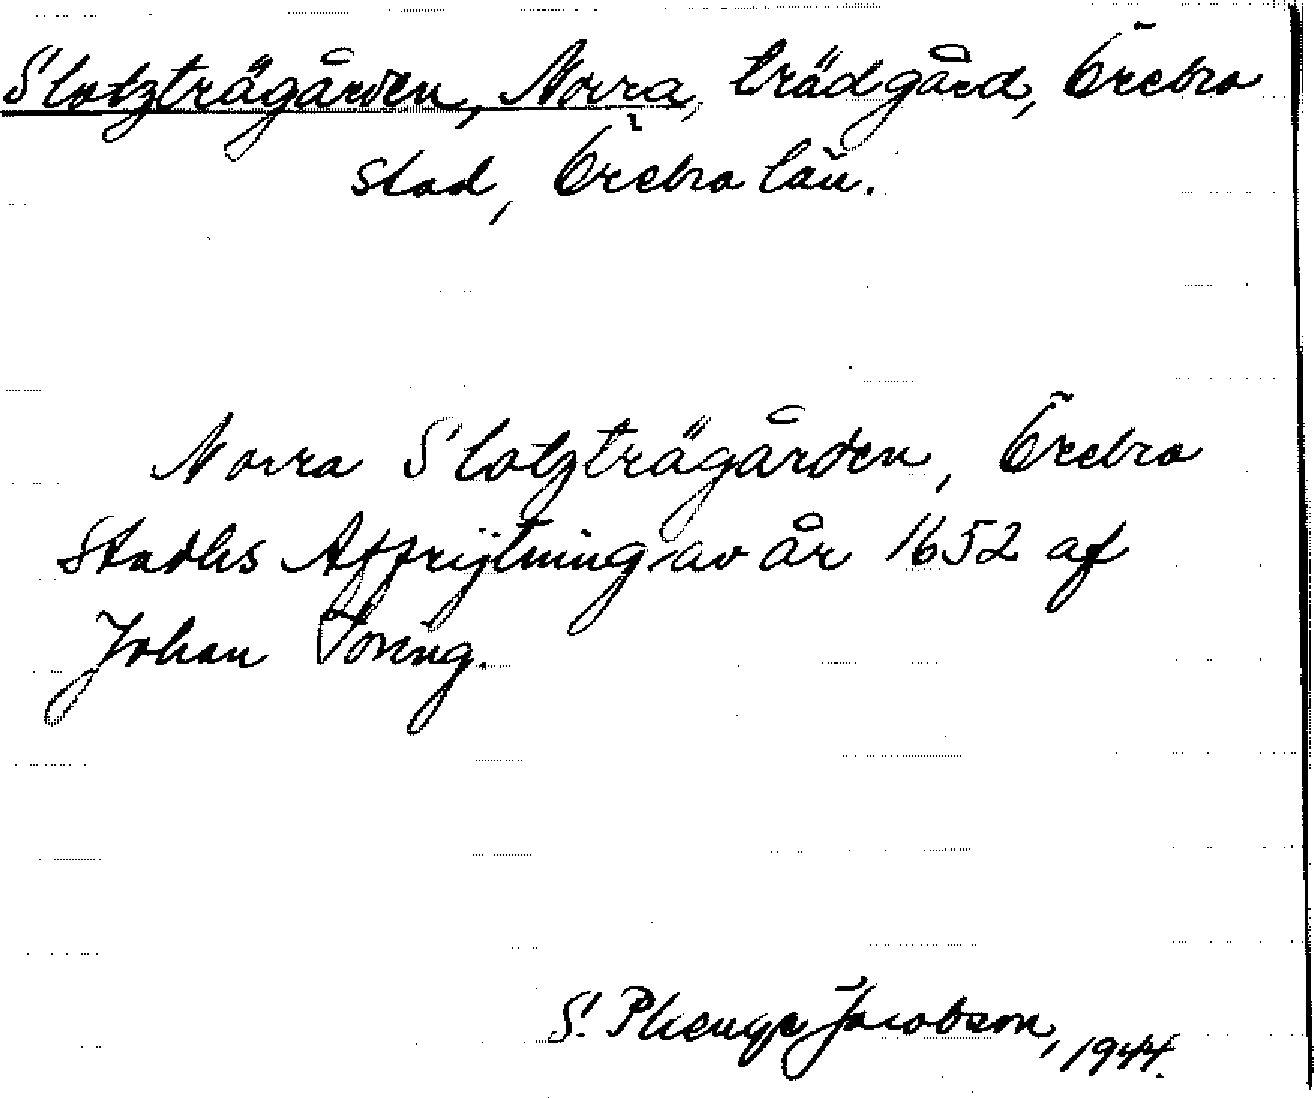 Slotzträgården, Norra, trädgård, Örebro
stad, Örebro län.
Norra Slotzträgården, Örebro
Stadhs Affrijtning av år 1652 af
Johan Töring.
S. Phenge Jacobson, 1944.